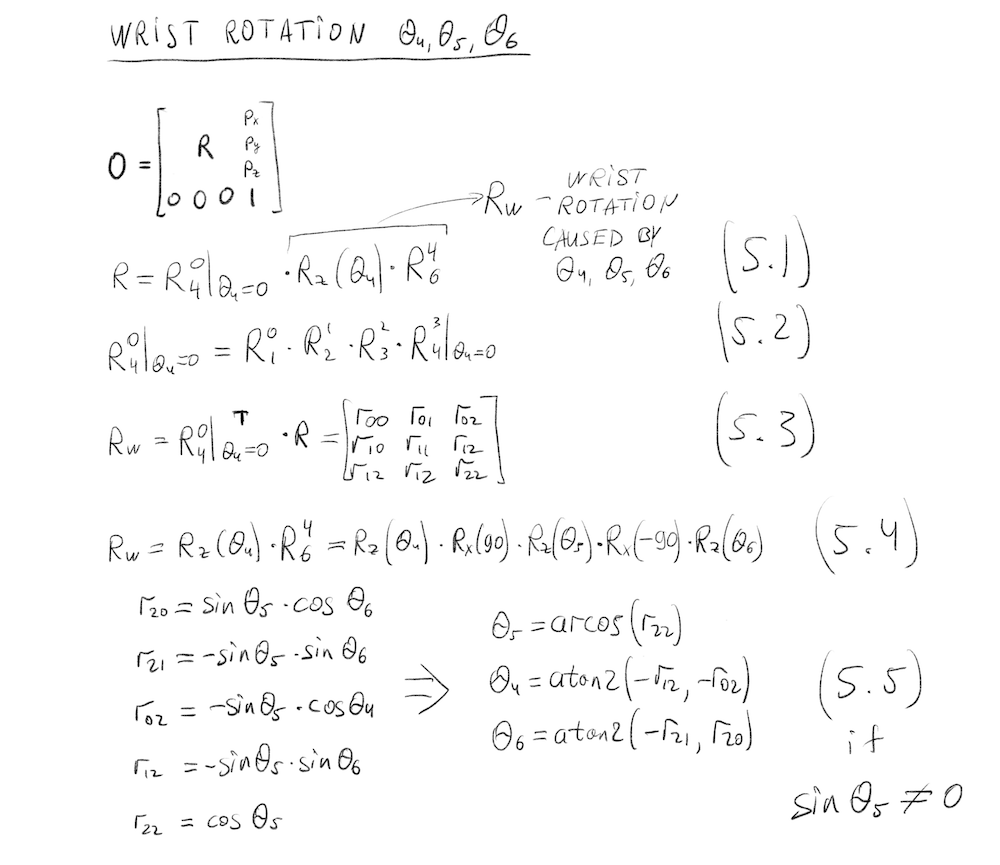 WRIST ROTATION θ₄, θ₅, θ₆
O = [ R Px Py Pz 0 0 0 1 ]
Rw - WRIST ROTATION CAUSED BY θ₄, θ₅, θ₆
R = R₄⁰|θ₄=0 · Rz(θ₄) · R₆⁴ (5.1)
R₄⁰|θ₄=0 = R₁⁰ · R₂¹ · R₃² · R₄³|θ₄=0 (5.2)
Rw = R₄⁰|ᵀθ₄=0 · R = [ r00 r01 r02 r10 r11 r12 r12 r12 r22 ] (5.3)
Rw = Rz(θ₄) · R₆⁴ = Rz(θ₄) · Rx(90) · Rz(θ₅) · Rx(-90) · Rz(θ₆) (5.4)
r20 = sin θ₅ · cos θ₆
r21 = -sin θ₅ · sin θ₆
r02 = -sin θ₅ · cos θ₄
r12 = -sin θ₅ · sin θ₆
r22 = cos θ₅
⇒
θ₅ = arcos(r22)
θ₄ = atan2(-r12, -r02)
θ₆ = atan2(-r21, r20)
(5.5)
if
sin θ₅ ≠ 0